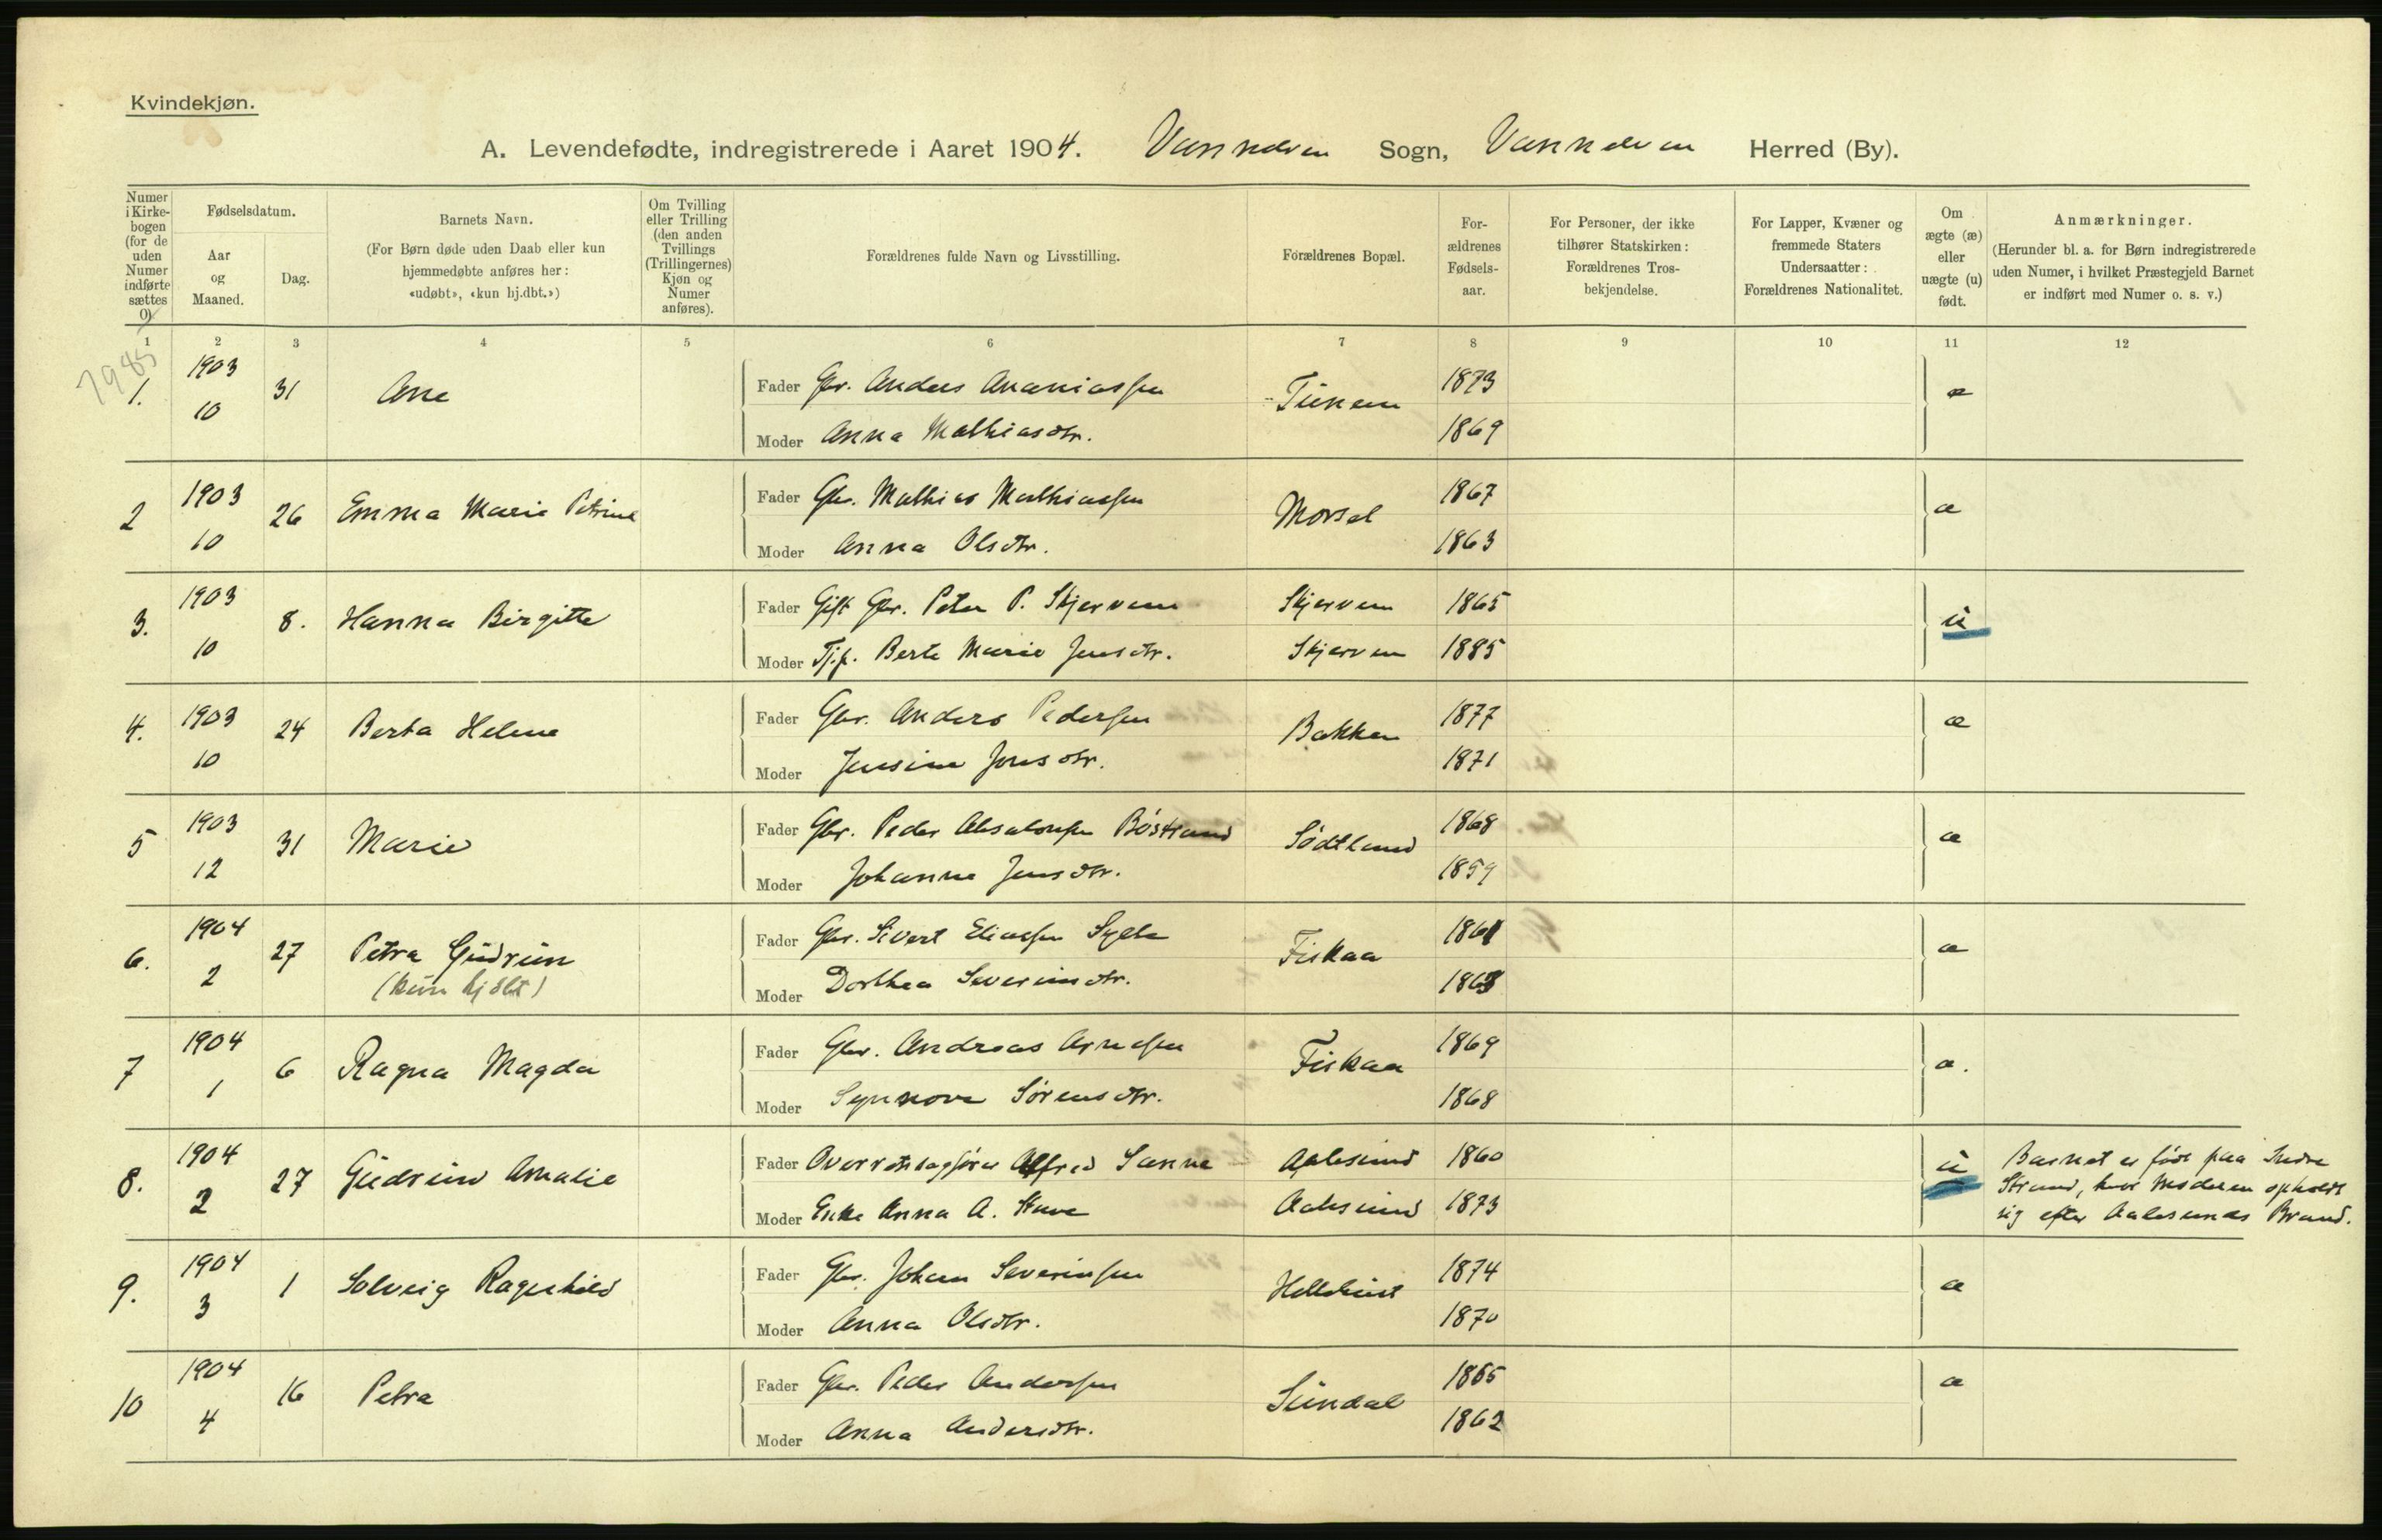 Kvindekjøn.
A. Levendefødte, indregistrerede i Aaret 1904. Vannelven Sogn, Vannelven Herred (By).
Numer i Kirkebogen (for de uden Numer indførte sættes 0)
Fødselsdatum.
Aar og Maaned.
Dag.
Barnets Navn.
(For Børn døde uden Daab eller kun hjemmedøbte anføres her: «udøbt», «kun hj.dbt.»)
Om Tvilling eller Trilling (den anden Tvillings (Trillingernes) Kjøn og Numer anføres).
Forældrenes fulde Navn og Livsstilling.
Forældrenes Bopæl.
Forældrenes Fødselsaar.
For Personer, der ikke tilhører Statskirken: Forældrenes Trosbekjendelse.
For Lapper, Kvæner og fremmede Staters Undersaatter: Forældrenes Nationalitet.
Om ægte (æ) eller uægte (u) født.
Anmærkninger.
(Herunder bl. a. for Børn indregistrerede uden Numer, i hvilket Præstegjeld Barnet er indført med Numer o. s. v.)
1 2 3 4 5 6 7 8 9 10 11 12
7985
1. 1903 10 31 Ane
Fader Gbr. Anders Ananiassen Tunem 1873 æ
Moder Anna Mathiasdtr. 1869
2 1903 10 26 Emma Marie Petrine
Fader Gbr. Mathias Mathiassen Morsel 1867 æ
Moder Anna Olsdtr. 1863
3. 1903 10 8. Hanna Birgitte
Fader Gift Gbr. Peter P. Skjerven Skjerven 1865 u
Moder Tj.p. Berte Marie Jensdtr. Skjerven 1885
4. 1903 10 24 Berta Helene
Fader Gbr. Anders Pedersen Bakken 1877 æ
Moder Jensine Jonsdtr. 1871
5 1903 12 31 Marie
Fader Gbr. Peder Absalonsen Böstrand Södtland 1868 æ
Moder Johanne Jensdtr. 1859
6. 1904 2 27 Petra Gudrun
(kun hjdbt)
Fader Gbr. Sivert Eliassen Sylte Fiskaa 1861 æ
Moder Dorthea Severinsdtr. 1863
7 1904 1 6 Ragna Magda
Fader Gbr. Andreas Arnesen Fiskaa 1869 æ.
Moder Synnove Sørensdtr. 1868
8. 1904 2 27 Gudrun Amalie
Fader Overretssagfører Alfred Sanne Aalesund 1860 u
Moder Enke Anna A. Stuve Aalesund 1873
Barnet er født paa Indre
Strand, hvor Moderen opholdt
sig efter Aalesunds Brand.
9. 1904 3 1 Solveig Ragnhild
Fader Gbr. Johan Severinsen Hellebust 1874 æ
Moder Anna Olsdtr. 1870
10 1904 4 16 Petra
Fader Gbr. Peder Andersen Sundal 1865 æ
Moder Anna Andersdtr. 1862